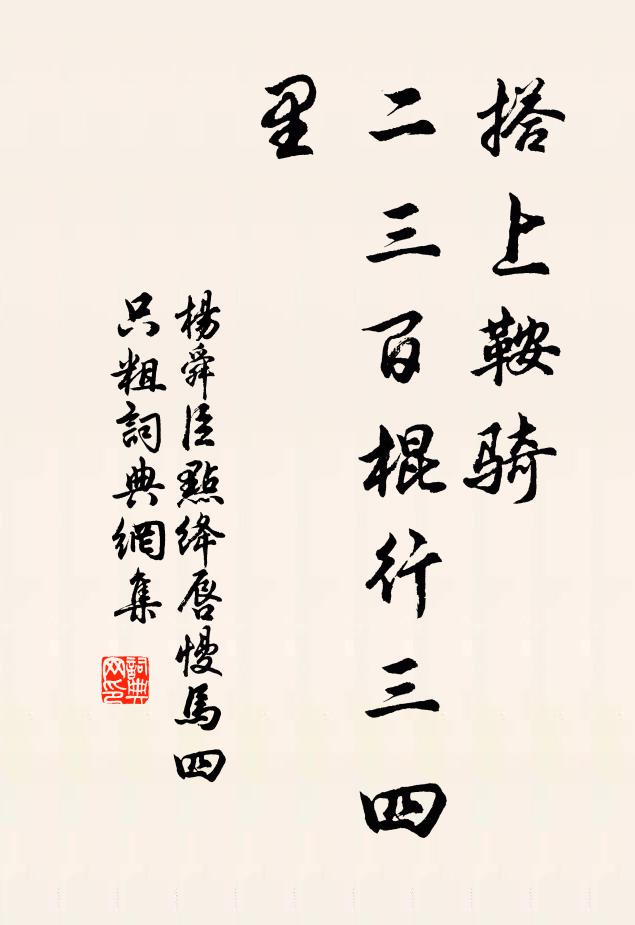 搭上鞍骑
二三百棍行三四
里
楊舜臣點绛唇慢馬四
只粗詞典網集
詞典网印